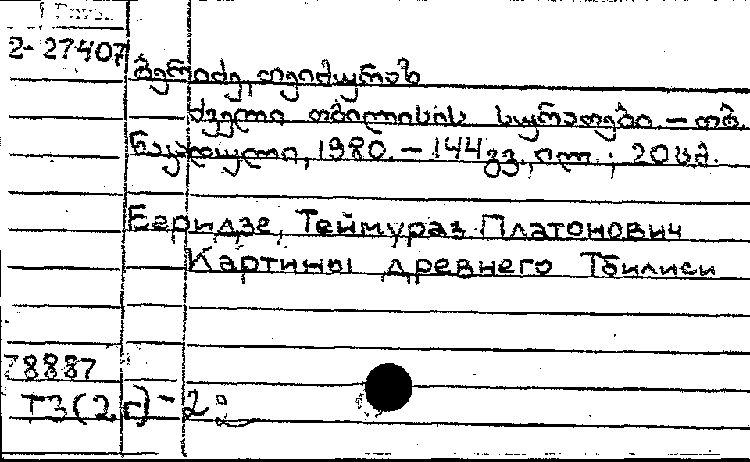 2-27407
ბერიძე, თეიმურაზ
ძველი თბილისის სურათები. – თბ.
ნაკადული, 1980. – 144 გვ., ილ.; 20 სმ.
Беридзе, Теймураз Платонович
Картины древнего Тбилиси
78887
Т3(2Г)-2